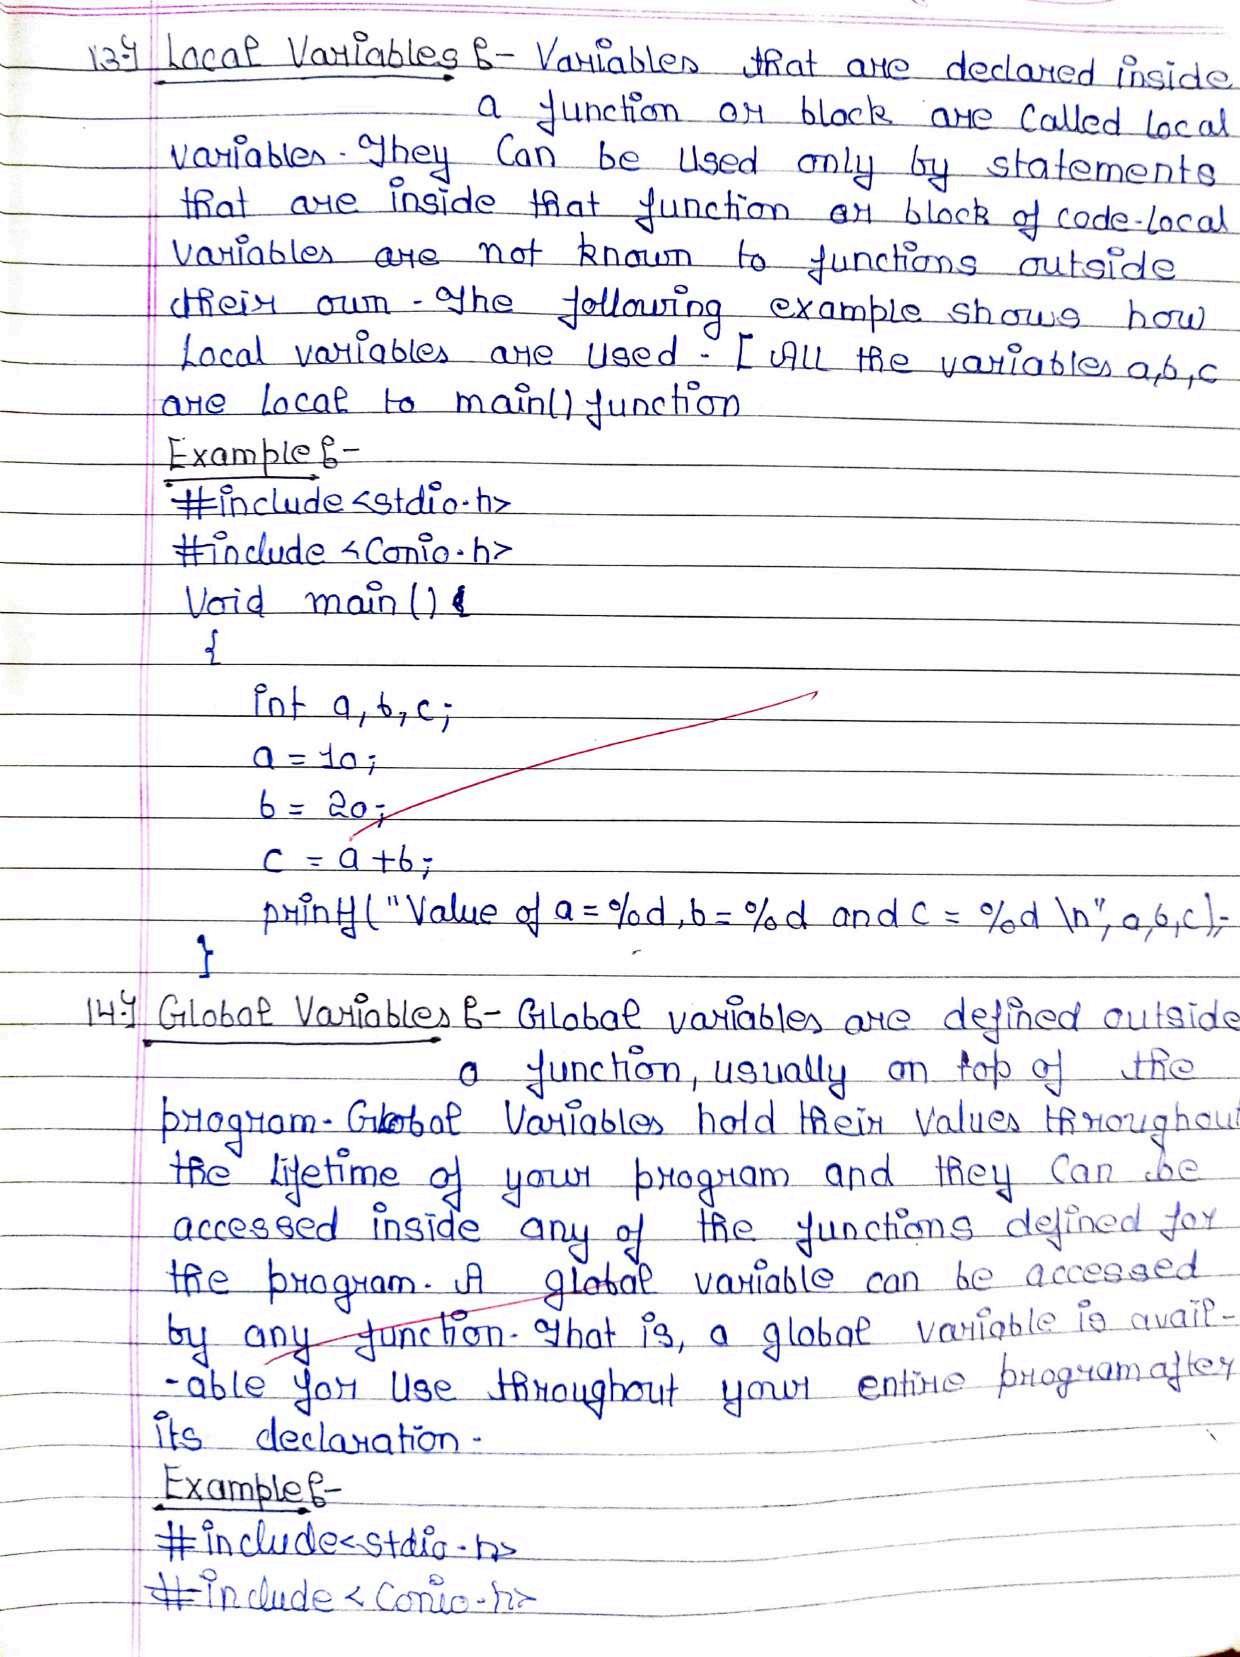 13.) Local Variables :- Variables that are declared inside
a function or block are called local
variables. They can be used only by statements
that are inside that function or block of code. Local
variables are not known to functions outside
their own. The following example shows how
local variables are used. [ All the variables a,b,c
are local to main() function
Example :-
#include <stdio.h>
#include <Conio.h>
Void main()
{
int a, b, c;
a = 10;
b = 20;
c = a + b;
printf("Value of a = %d, b = %d and c = %d \n", a, b, c);
}
14.) Global Variables :- Global variables are defined outside
a function, usually on top of the
program. Global Variables hold their values throughout
the lifetime of your program and they can be
accessed inside any of the functions defined for
the program. A global variable can be accessed
by any function. That is, a global variable is avail-
-able for use throughout your entire program after
its declaration.
Example :-
#include <stdio.h>
#include <Conio.h>